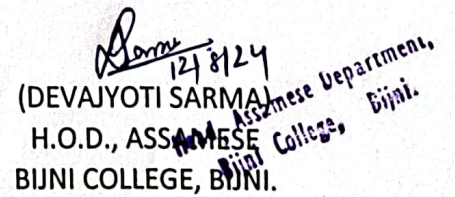 12/8/24
(DEVAJYOTI SARMA)
H.O.D., ASSAMESE
BIJNI COLLEGE, BIJNI.
Head, Assamese Department,
Bijni College, Bijni.